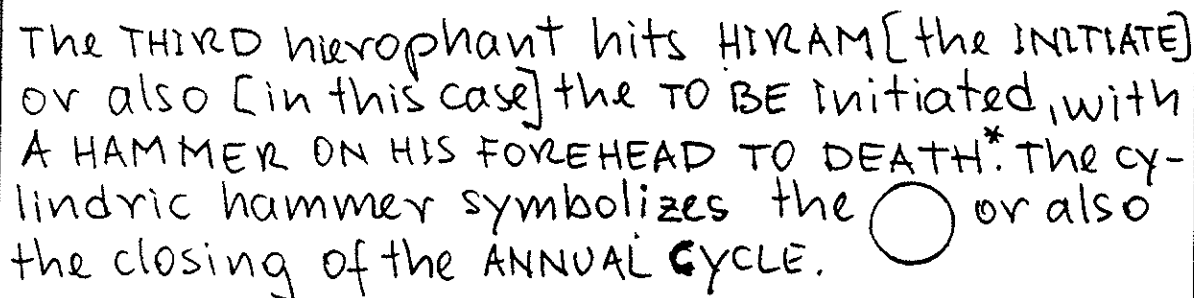 The THIRD hierophant hits HIRAM [the INITIATE]
or also [in this case] the TO BE initiated, with
A HAMMER ON HIS FOREHEAD TO DEATH*. The cy-
lindric hammer symbolizes the ◯ or also
the closing of the ANNUAL CYCLE.